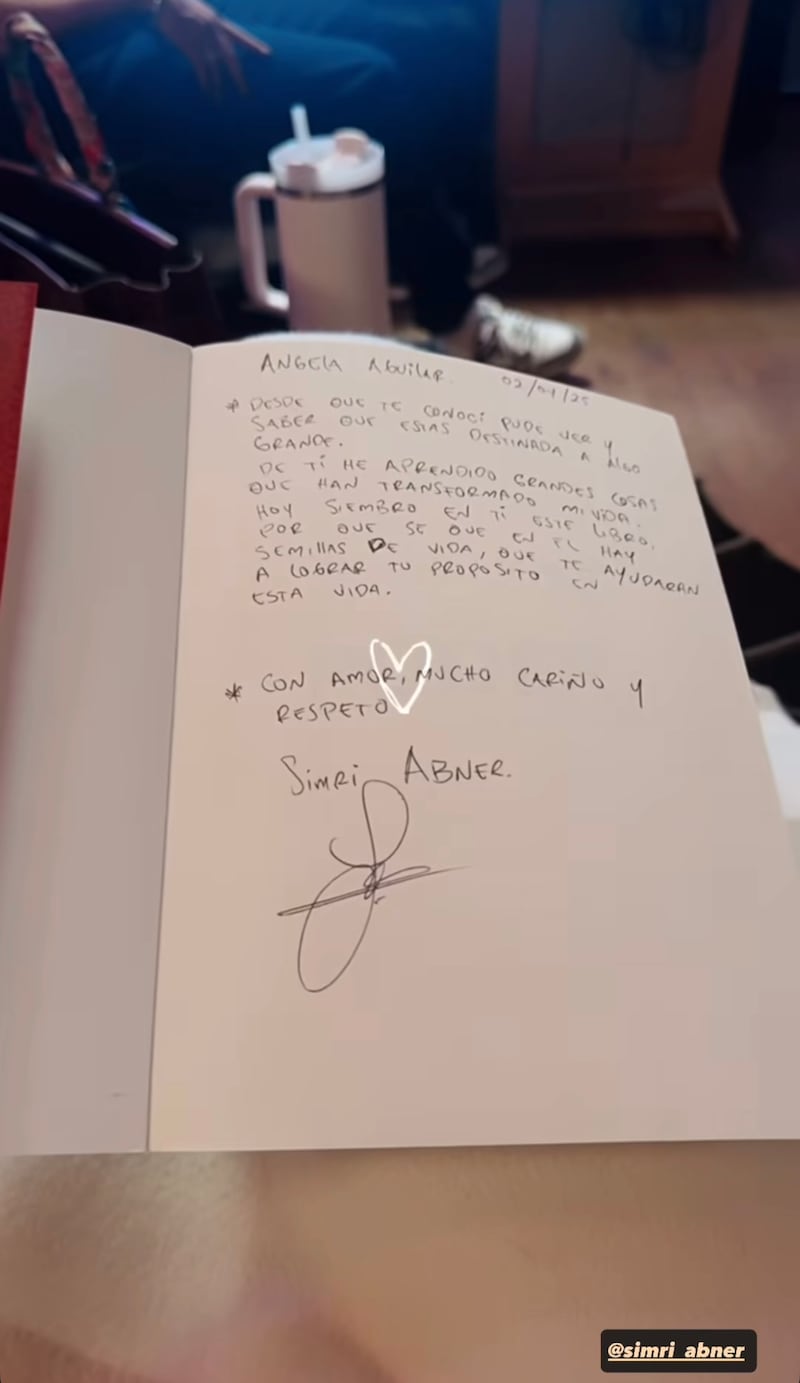 ANGELA AGUILAR.
02/01/25
* DESDE QUE TE CONOCÍ PUDE VER Y
SABER QUE ESTAS DESTINADA A ALGO
GRANDE.
DE TÍ HE APRENDIDO GRANDES COSAS
QUE HAN TRANSFORMADO MI VIDA.
HOY SIEMBRO EN TI ESTE LIBRO,
POR QUE SE QUE EN EL HAY
SEMILLAS DE VIDA, QUE TE AYUDARAN
A LOGRAR TU PROPOSITO EN
ESTA VIDA.
* CON AMOR, MUCHO CARIÑO Y
RESPETO
SIMRI ABNER.
@simri_abner